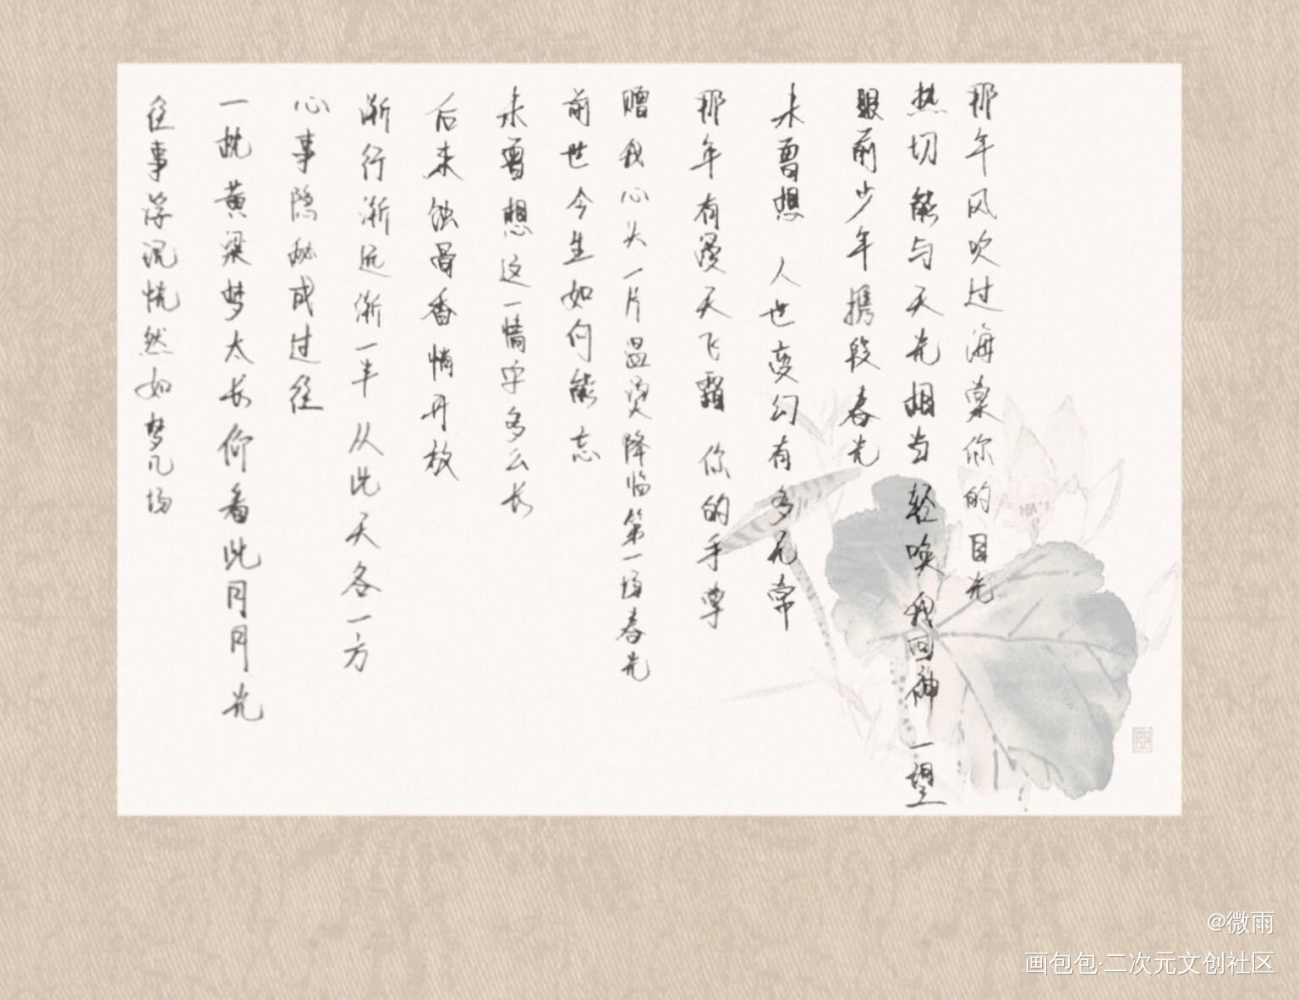 那年风吹过海棠你的目光
热切能与天光相当 轻唤我回神 一望
眼前少年携段春光
未曾想 人世变幻有多无常
那年有漫天飞霜 你的手掌
赠我心头一片温烫降临第一场春光
前世今生如何能忘
未曾想这一情字多么长
后来蚀骨香情开放
渐行渐远渐一半 从此天各一方
心事隐秘成过往
一枕黄粱梦太长仰看此间月光
往事浮沉恍然如梦几场
@微雨
画包包·二次元文创社区